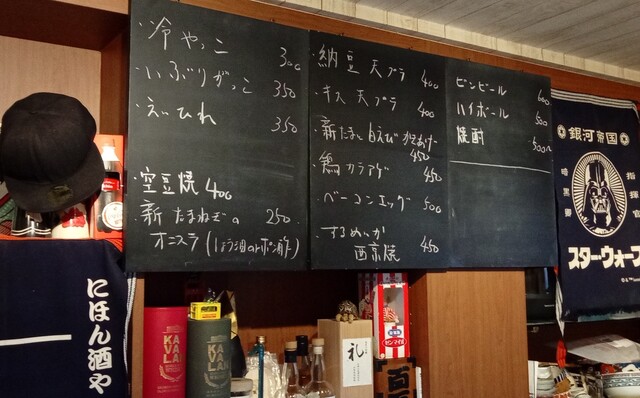 ・冷やっこ 300
・いぶりがっこ 350
・えいひれ 350
・空豆焼 400
・新たまねぎの 250
オニスラ(しょう油 or ポン酢)
・納豆天プラ 400
・キス天プラ 400
・新たまと白えびかきあげ 450
・鶏カラアゲ 450
・ベーコンエッグ 500
・するめいか
西京焼 450
ビンビール 600
ハイボール 500
焼酎 500〜
にほん酒や
KA
VA
LAN
KA
VA
LAN
礼
銀河帝国
暗黒卿
指揮
スター・ウォーズ